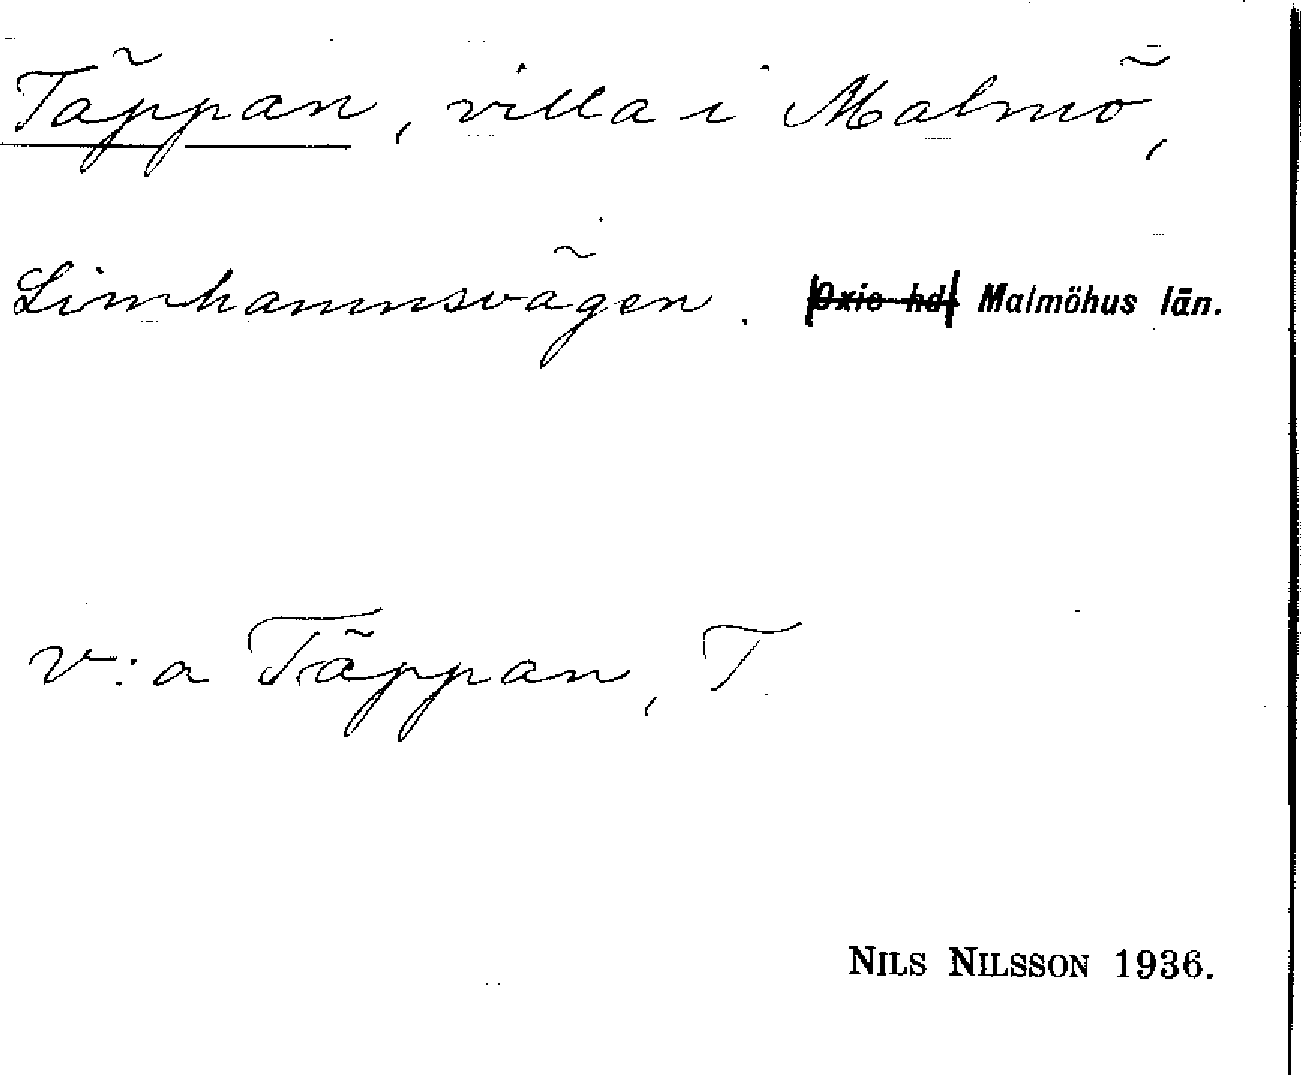 Täppan, villa i Malmö,
Limhamnsvägen. Oxie hd Malmöhus län.
v: a Täppan, T
NILS NILSSON 1936.